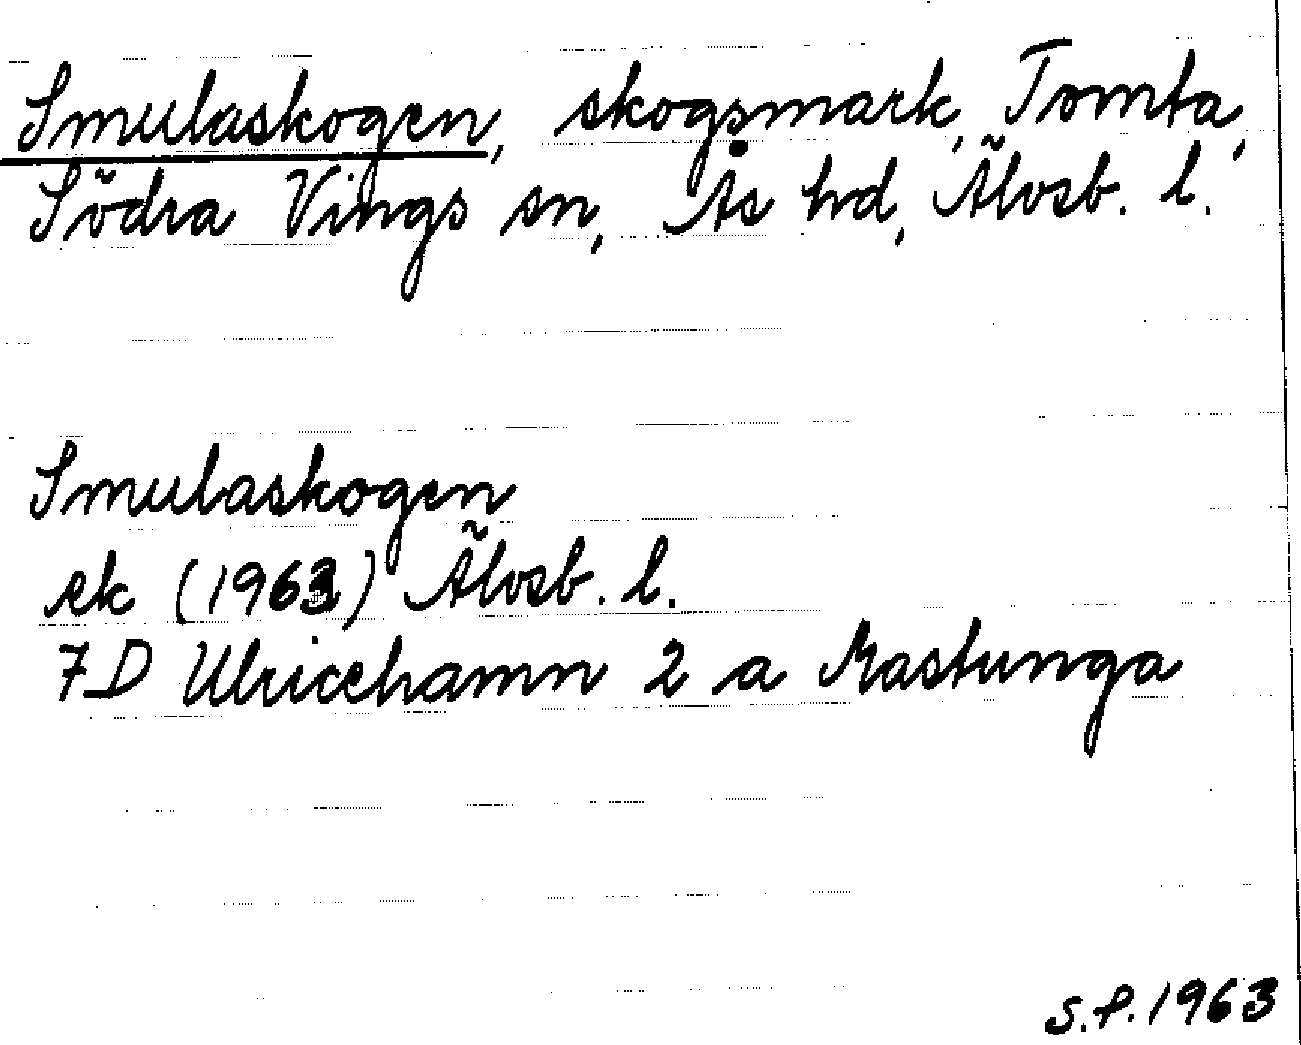 Smulaskogen, skogsmark, Tomta,
Södra Vings sn, Ås hd, Älvsb. l.
Smulaskogen
ek (1963) Älvsb. l.
7D Ulricehamn 2 a Mastunga
S.P. 1963